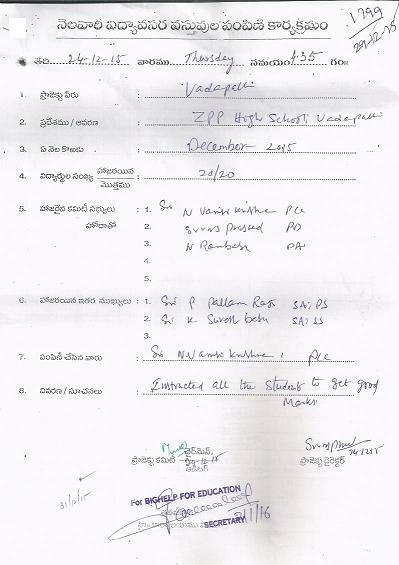 నెలవారీ విద్యావసర వస్తువుల పంపిణీ కార్యక్రమం
1799
29-12-15
తేది 24-12-15 వారము Thursday సమయం 1:35 గం॥
1. ప్రాజెక్టు పేరు Vadapalli
2. ప్రదేశము / ఆవరణ ZPP High School; Vadapalli
3. ఏ నెల కొఱకు December 2015
4. విద్యార్థుల సంఖ్య హాజరయిన / మొత్తము 20/20
5. హాజరైన కమిటీ సభ్యులు హోదాతో
1. Sri N Vamsi Krishna PCC
2. Prasad PD
3. N Rambabu PA
4.
5.
6. హాజరయిన ఇతర ముఖ్యులు
1. Sri P Pallam Raju SA; PS
2. Sri K Suresh babu SA; SS
3.
7. పంపిణీ చేసిన వారు Sri N. Vamsi Krishna; PCC
8. వివరణ / సూచనలు Instructed all the Students to get good
Marks
ప్రాజెక్టు కమిటీ ఛైర్మెన్,
24/12/15
ప్రాజెక్టు డైరెక్టర్
31/12/15
For BIGHELP FOR EDUCATION
SECRETARY